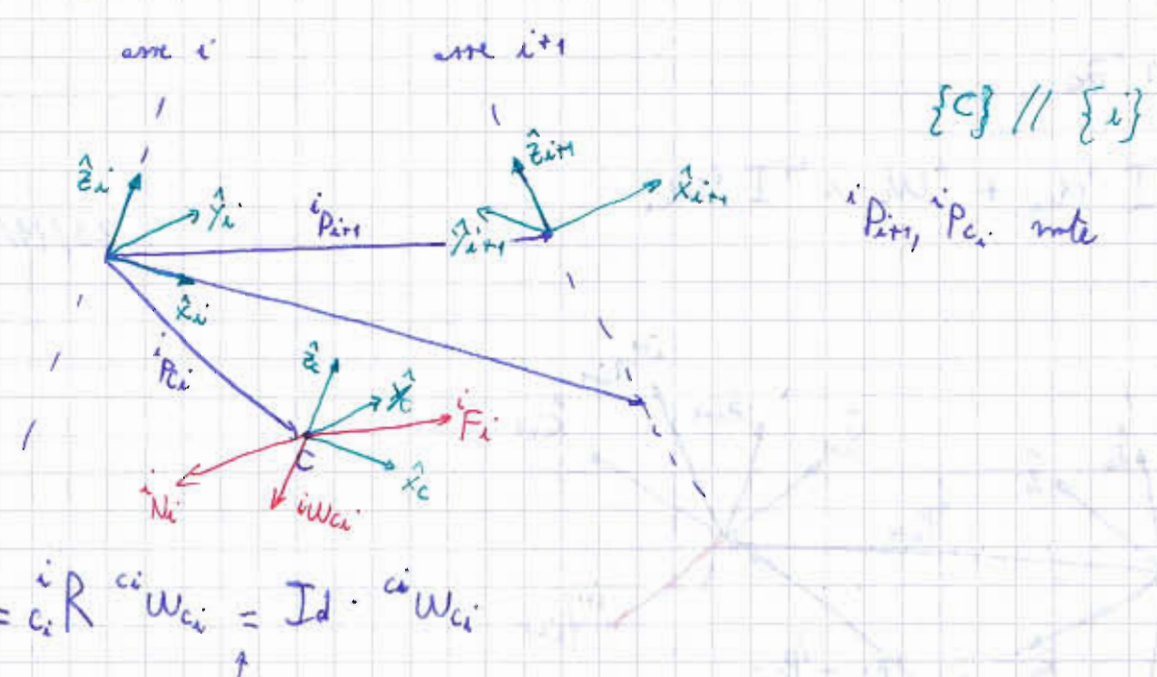 asse i asse i+1
{C} // {i}
ẑi ŷi iPi+1 ŷi+1 ẑi+1 x̂i+1
iPi+1, iPci note
x̂i
iPci
ẑc
iFi
C x̂c
iNi iωci
= iciR ciωci = Id · ciωci
↑